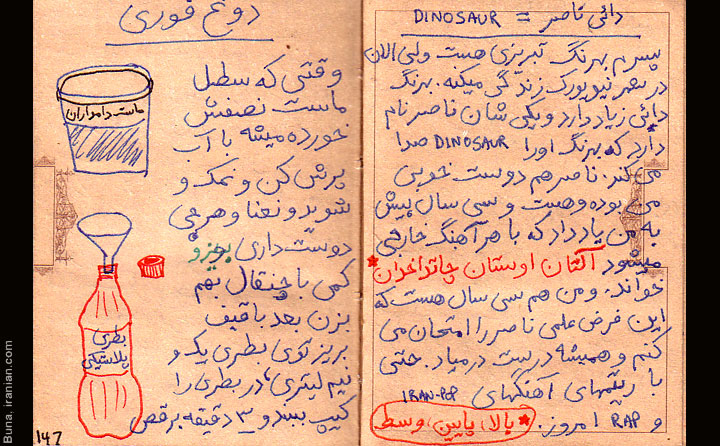 دائی ناصر = DINOSAUR
پسرم بهرنگ تبریزی هست ولی الان
در شهر نیویورک زندگی میکنه. بهرنگ
دائی زیاد دارد و یکی شان ناصر نام
دارد که بهرنگ اورا DINOSAUR صدا
می کند. ناصر هم دوست خوبی
می بوده و هست و سی سال پیش
به من یاد داد که با هر آهنگ خارجی
میشود آلتان اوستان چاتداخدان*
خواند. و من هم سی سال هست که
این فرض علمی ناصر را امتحان می
کنم و همیشه درست درمیاد. حتی
با ریتمهای آهنگهای IRAN-POP
و RAP امروز.
*بالا، پایین، وسط
دوغ فوری
وقتی که سطل
ماست نصفش
خورده میشه با آب
پرش کن و نمک و
شوید و نعنا و هرچی
دوست داری بریز و
کمی با چنقال بهم
بزن بعد با قیف
بریز توی بطری یک و
نیم لیتری، در بطری را
کیپ ببند و ۳ دقیقه برقص
ماست دامداران
بطری
پلاستیکی
147
Buna, iranian.com